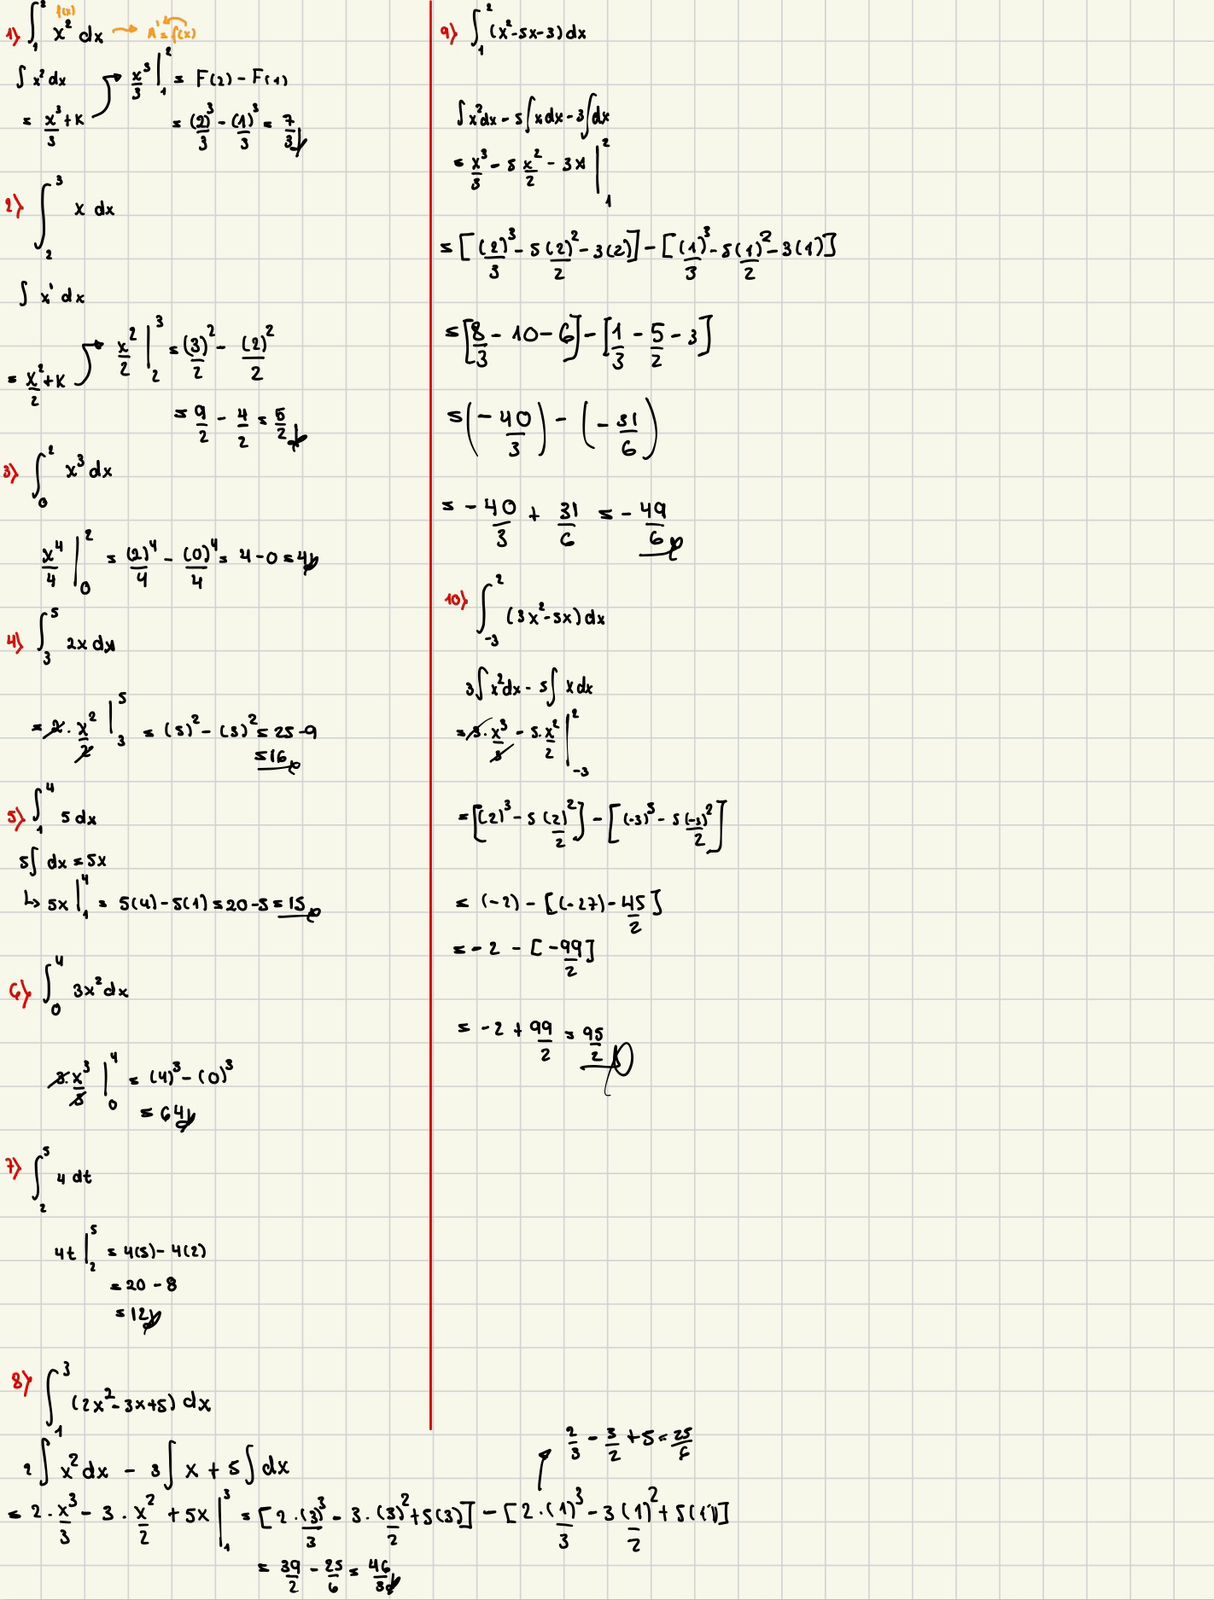 1) ∫₁² x² dx → A' = f(x)
f(x)
∫ x² dx
= x³/3 + K
x³/3 |₁² = F(2) - F(1)
= (2)³/3 - (1)³/3 = 7/3
2) ∫₂³ x dx
∫ x¹ dx
= x²/2 + K
x²/2 |₂³ = (3)²/2 - (2)²/2
= 9/2 - 4/2 = 5/2
3) ∫₀² x³ dx
x⁴/4 |₀² = (2)⁴/4 - (0)⁴/4 = 4 - 0 = 4
4) ∫₃⁵ 2x dx
= 2 · x²/2 |₃⁵ = (5)² - (3)² = 25 - 9
= 16
5) ∫₁⁴ 5 dx
5∫ dx = 5x
↳ 5x |₁⁴ = 5(4) - 5(1) = 20 - 5 = 15
6) ∫₀⁴ 3x² dx
3·x³/3 |₀⁴ = (4)³ - (0)³
= 64
7) ∫₂⁵ 4 dt
4t |₂⁵ = 4(5) - 4(2)
= 20 - 8
= 12
8) ∫₁³ (2x² - 3x + 5) dx
2∫ x² dx - 3∫ x + 5∫ dx
= 2 · x³/3 - 3 · x²/2 + 5x |₁³ = [2 · (3)³/3 - 3 · (3)²/2 + 5(3)] - [2 · (1)³/3 - 3(1)²/2 + 5(1)]
2/3 - 3/2 + 5 = 25/6
= 39/2 - 25/6 = 46/3
9) ∫₁² (x² - 5x - 3) dx
∫ x² dx - 5∫ x dx - 3∫ dx
= x³/3 - 5 x²/2 - 3x |₁²
= [(2)³/3 - 5(2)²/2 - 3(2)] - [(1)³/3 - 5(1)²/2 - 3(1)]
= [8/3 - 10 - 6] - [1/3 - 5/2 - 3]
= (-40/3) - (-31/6)
= -40/3 + 31/6 = -49/6
10) ∫₋₃² (3x² - 5x) dx
3∫ x² dx - 5∫ x dx
= 3 · x³/3 - 5 · x²/2 |₋₃²
= [(2)³ - 5(2)²/2] - [(-3)³ - 5(-3)²/2]
= (-2) - [(-27) - 45/2]
= -2 - [-99/2]
= -2 + 99/2 = 95/2